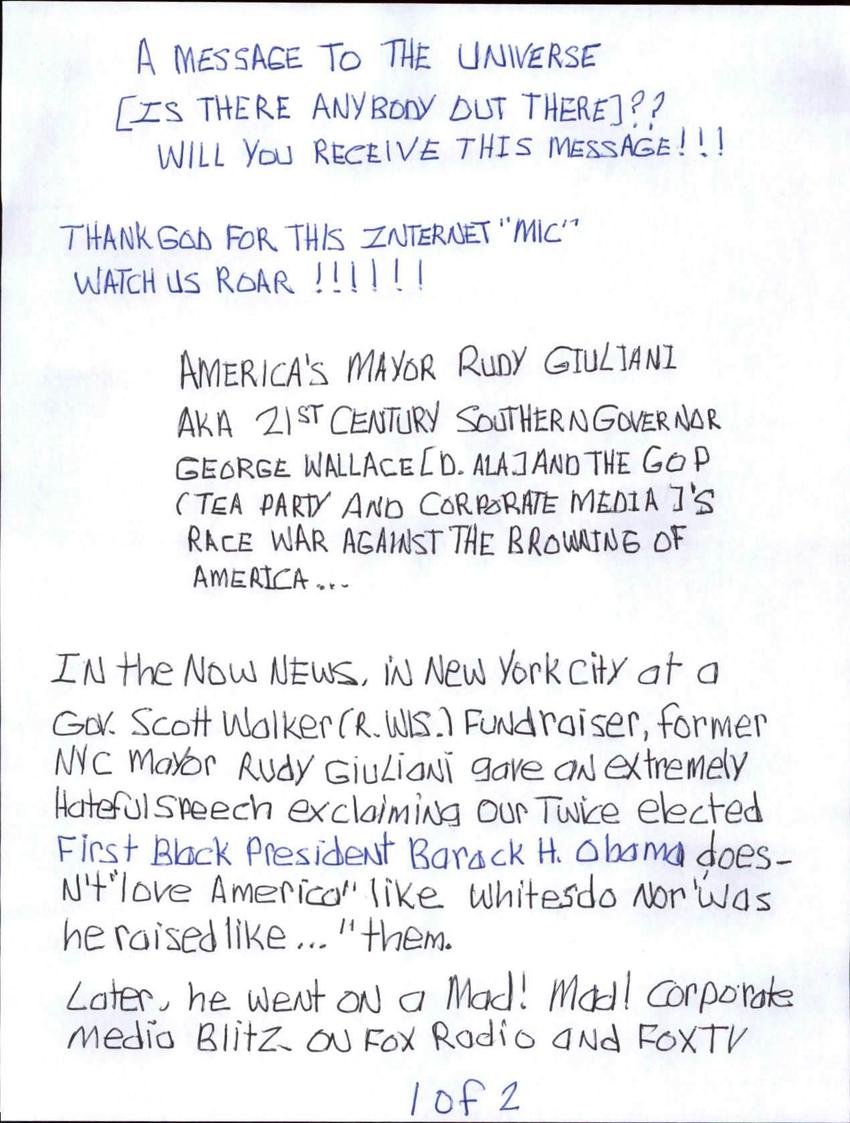 A MESSAGE TO THE UNIVERSE
[IS THERE ANYBODY OUT THERE]??
WILL YOU RECEIVE THIS MESSAGE!!!
THANK GOD FOR THIS INTERNET "MIC"
WATCH US ROAR !!!!!!
AMERICA'S MAYOR RUDY GIULIANI
AKA 21ST CENTURY SOUTHERN GOVERNOR
GEORGE WALLACE [D. ALA] AND THE GOP
(TEA PARTY AND CORPORATE MEDIA ]'S
RACE WAR AGAINST THE BROWNING OF
AMERICA...
IN the NOW NEWS, iN NEW York City at a
Gov. Scott Walker (R.WIS.) FUNdraiser, former
NYC Mayor Rudy Giuliani gave aN extremely
Hateful Speech exclaiming our Twice elected
First Black President Barack H. Obama does-
N't "love America" like Whites do Nor "was
he raised like ... "them.
Later, he went on a Mad! Mad! Corporate
Media Blitz on Fox Radio and FOX TV
1 of 2